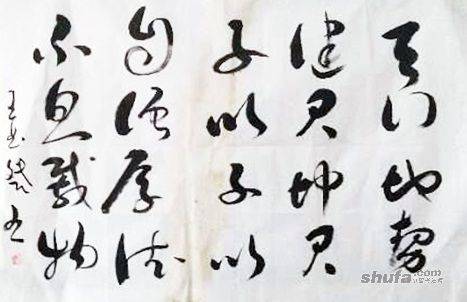 天行地勢
健君坤君
子以子以
自强厚德
不息載物
王
shufa.com